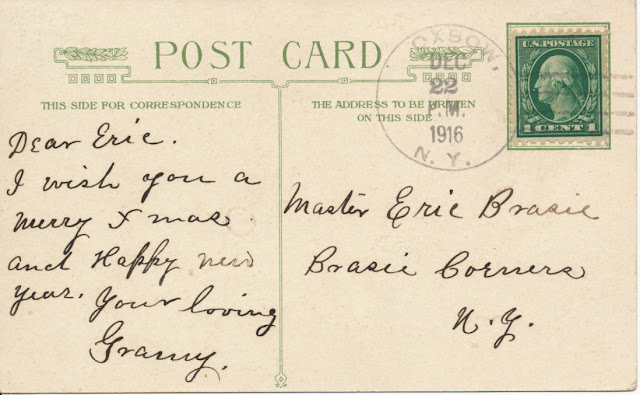 POST CARD
THIS SIDE FOR CORRESPONDENCE
THE ADDRESS TO BE WRITTEN
ON THIS SIDE
OXBOW,
DEC
22
P.M.
1916
N. Y.
U.S. POSTAGE
1 CENT 1
Dear Eric.
I wish you a
merry Xmas
and Happy new
year. Your loving
Granny.
Master Eric Brasie
Brasie Corners
N.Y.